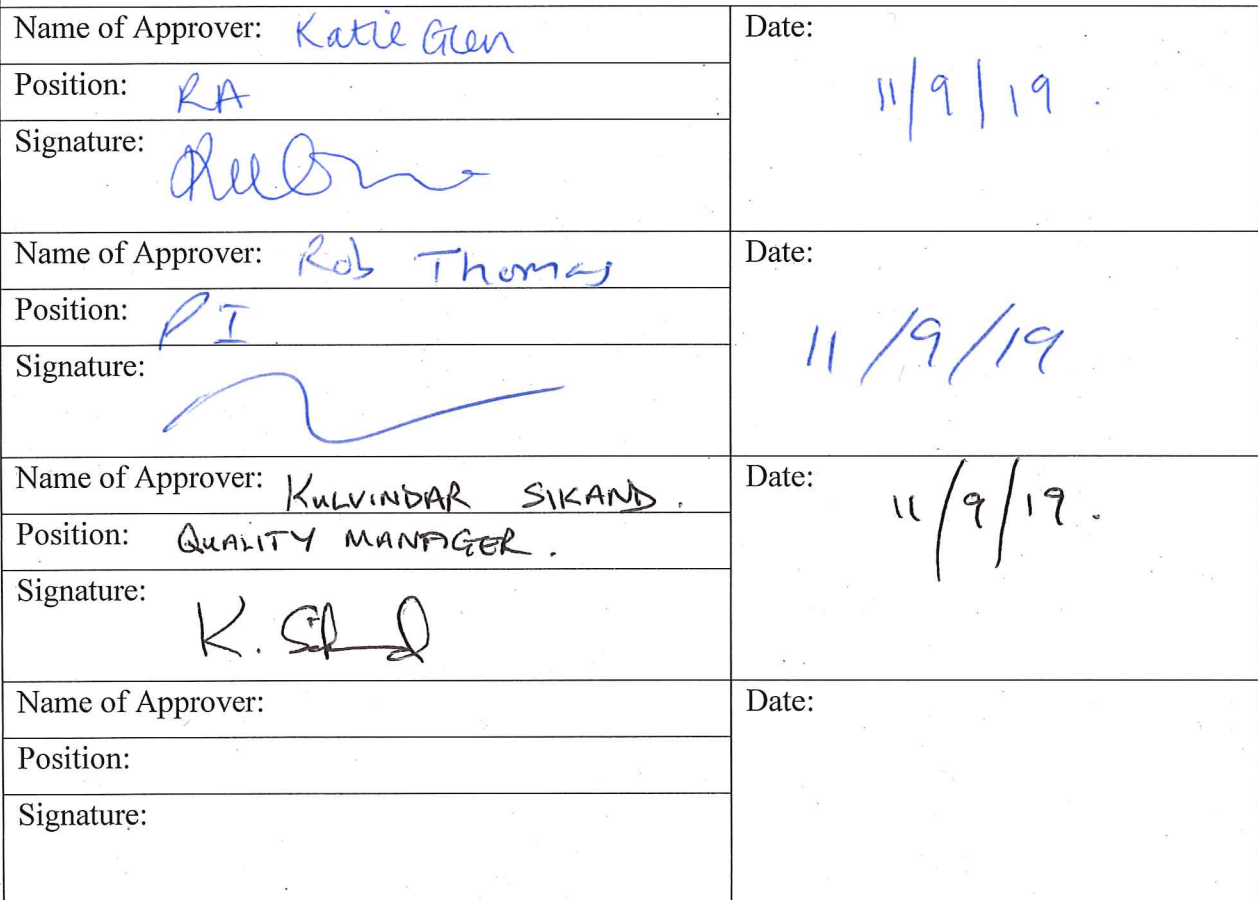 Name of Approver: Katie Glen
Date:
Position: RA
11/9/19.
Signature:
Name of Approver: Rob Thomas
Date:
Position: PI
11/9/19
Signature:
Name of Approver: KULVINDAR SIKAND.
Date:
11/9/19.
Position: QUALITY MANAGER.
Signature: K. Sikand
Name of Approver:
Date:
Position:
Signature: